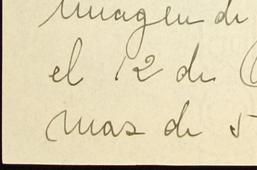 imagen de
el 12 de
mas de 5